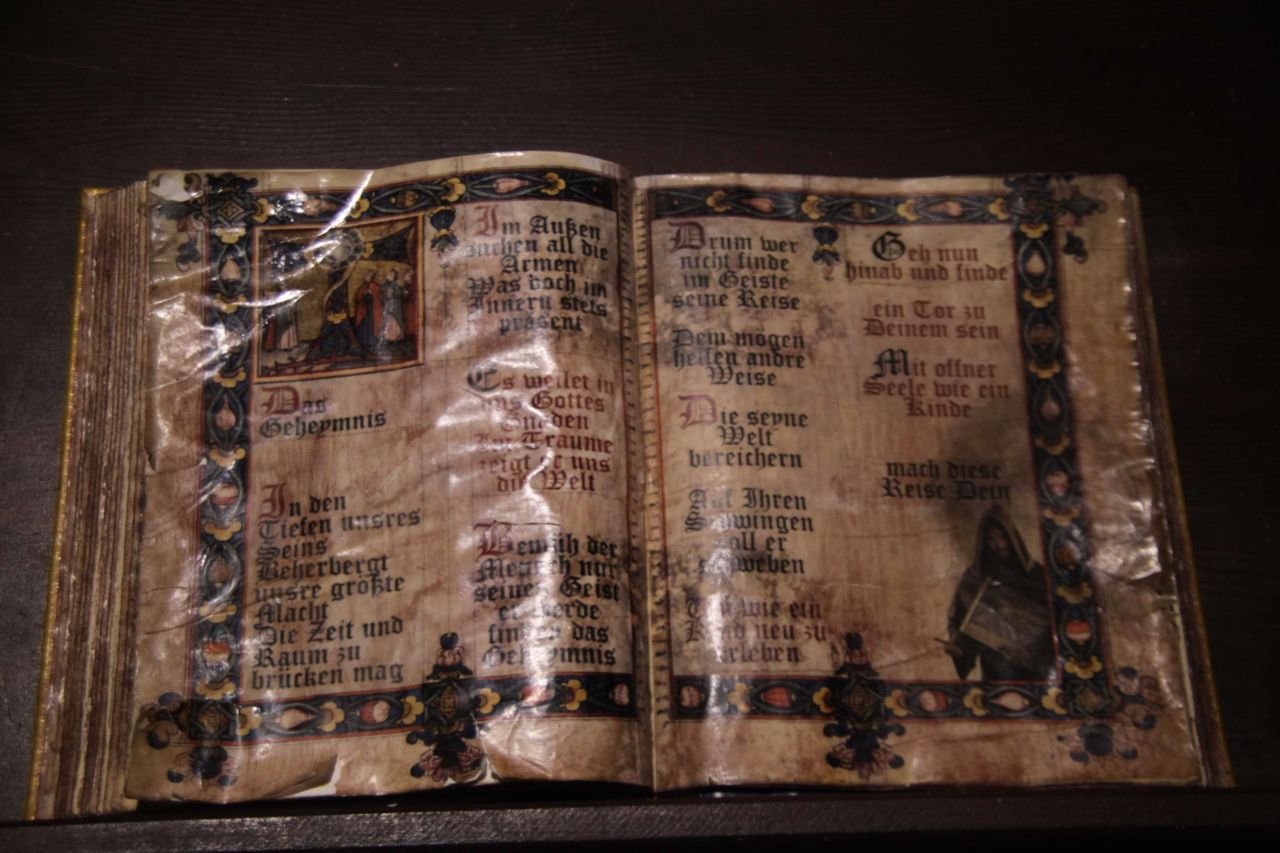 Das
Geheymnis
In den
Tiefen unsres
Seins
Beherbergt
unsre größte
Macht
Die Zeit und
Raum zu
brücken mag
Im Außen
suchen all die
Armen
Was doch im
Innern stets
präsent
Es weilet in
uns Gottes
Gnaden
Im Traume
zeigt er uns
die Welt
Bemüh der
Mensch nur
seinen Geist
er werde
finden das
Geheymnis
Drum wer
nicht finde
im Geiste
seine Reise
Dem mögen
helfen andre
Weise
Die seyne
Welt
bereichern
Auf Ihren
Schwingen
soll er
schweben
Und wie ein
Kind neu zu
erleben
Geh nun
hinab und finde
ein Tor zu
Deinem sein
Mit offner
Seele wie ein
Kinde
mach diese
Reise Dein